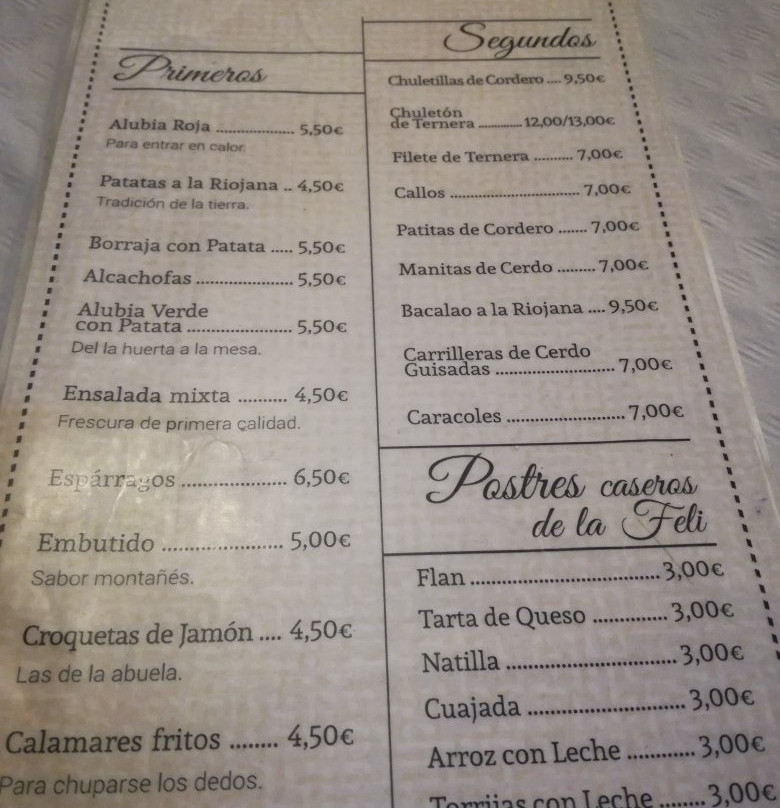 Primeros
Alubia Roja .................. 5,50€
Para entrar en calor.
Patatas a la Riojana .. 4,50€
Tradición de la tierra.
Borraja con Patata ..... 5,50€
Alcachofas ...................... 5,50€
Alubia Verde
con Patata ........................ 5,50€
Del la huerta a la mesa.
Ensalada mixta .......... 4,50€
Frescura de primera çalidad.
Espárragos .................. 6,50€
Embutido ..................... 5,00€
Sabor montañés.
Croquetas de Jamón .... 4,50€
Las de la abuela.
Calamares fritos ........ 4,50€
Para chuparse los dedos.
Segundos
Chuletillas de Cordero .... 9,50€
Chuletón
de Ternera ............ 12,00/13,00€
Filete de Ternera .......... 7,00€
Callos ................................ 7,00€
Patitas de Cordero ....... 7,00€
Manitas de Cerdo ......... 7,00€
Bacalao a la Riojana .... 9,50€
Carrilleras de Cerdo
Guisadas ............................ 7,00€
Caracoles ........................... 7,00€
Postres caseros
de la Feli
Flan .................................. 3,00€
Tarta de Queso ............. 3,00€
Natilla .............................. 3,00€
Cuajada ........................... 3,00€
Arroz con Leche ............ 3,00€
Torrijas con Leche ........ 3,00€